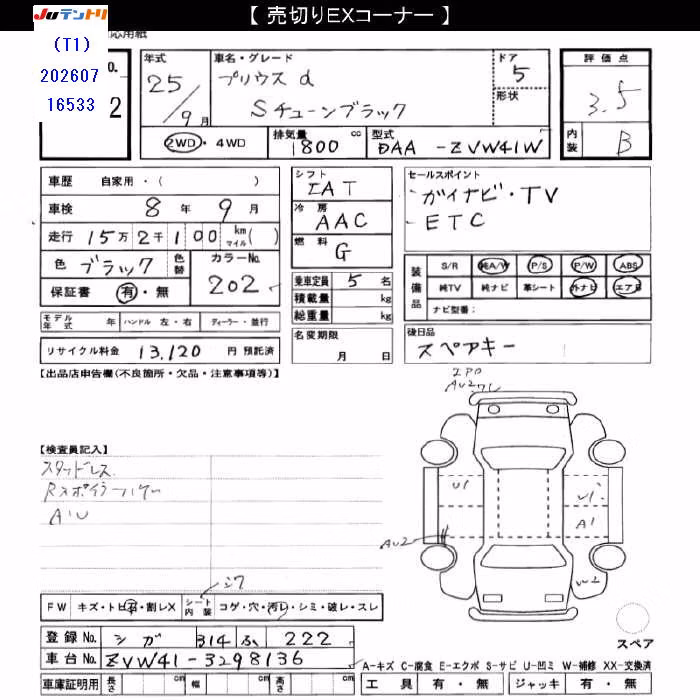 【 売切りEXコーナー 】
JUテントリ
応用紙
(T1)
202607
16533
o.
2
年式
25/9月
車名・グレード
プリウス α
Sチューンブラック
ドア
5
形状
評価点
3.5
内装
B
2WD・4WD
排気量
1800 cc
型式
DAA -ZVW41W
車歴 自家用・( )
車検 8年 9月
走行 15万2千100 km マイル( )
色 ブラック 色替
カラーNo.
202
保証書 有・無
シフト
IAT
冷房
AAC
燃料
G
乗車定員 5 名
積載量 kg
総重量 kg
セールスポイント
ガイナビ・TV
ETC
装備品
S/R 純A/W P/S P/W ABS
純TV 純ナビ 革シート 外ナビ エアB
ナビ型番:
モデル年式 年 ハンドル 左・右 ディーラー・並行
リサイクル料金 13,120 円 預託済
名変期限
月 日
後日品
スペアキー
【出品店申告欄(不良箇所・欠品・注意事項等)】
AU2
【検査員記入】
スタッドレス
Rスポイラー
AU
U1
A1
AU2
W2
FW キズ・トビ石・割レX
シート内装 コゲ・穴・汚レ・シミ・破レ・スレ
登録No. シガ 314 ふ 222
車台No. ZVW41-3298136
車庫証明用 長さ cm 幅 cm 高さ cm
スペア
A-キズ C-腐食 E-エクボ S-サビ U-凹ミ W-補修 XX-交換済
工具 有・無 ジャッキ 有・無